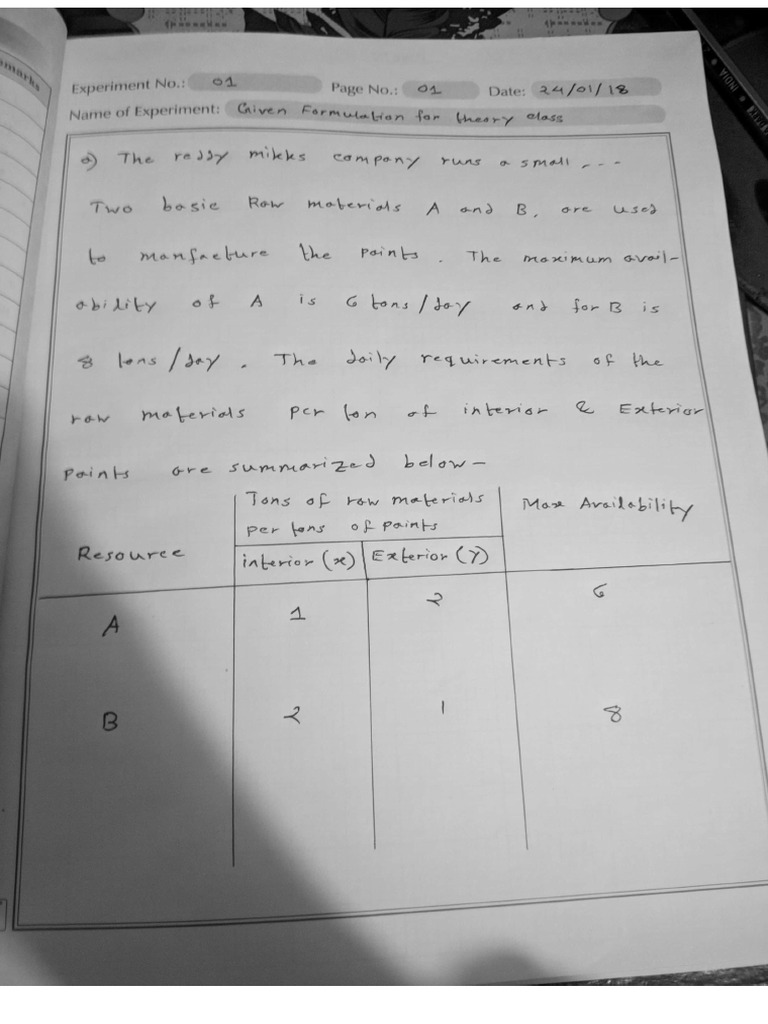 omarks
Experiment No.: 01 Page No.: 01 Date: 24/01/18
Name of Experiment: Given Formulation for theory class
a) The reddy mikks company runs a small ---
Two basic Raw materials A and B, are used
to manfacture the paints. The maximum avail-
ability of A is 6 tons/day and for B is
8 tons/day. The daily requirements of the
raw materials per ton of interior & Exterior
paints are summarized below-
Resource Tons of raw materials per tons of paints Max Availability
interior (x) Exterior (y)
A 1 2 6
B 2 1 8